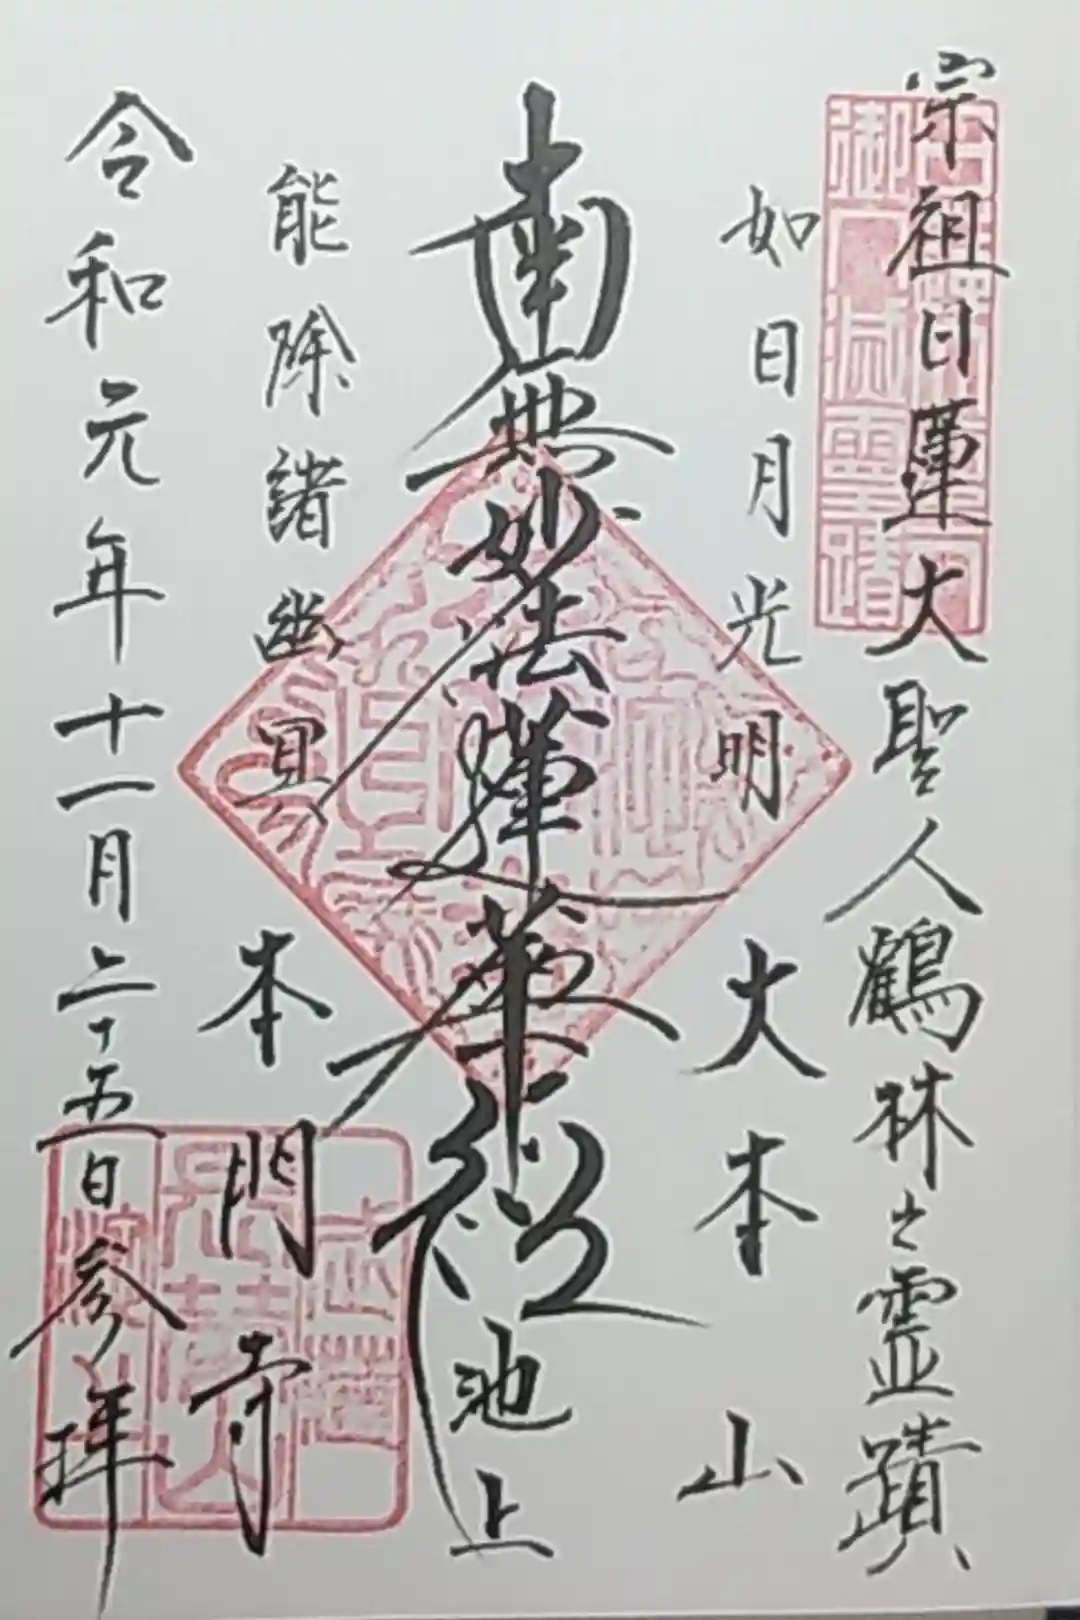 宗祖日蓮大聖人鶴林之霊蹟
如日月光明
大本山
南無妙法蓮華経
池上
能除諸幽冥
本門寺
令和元年十一月二十五日参拝